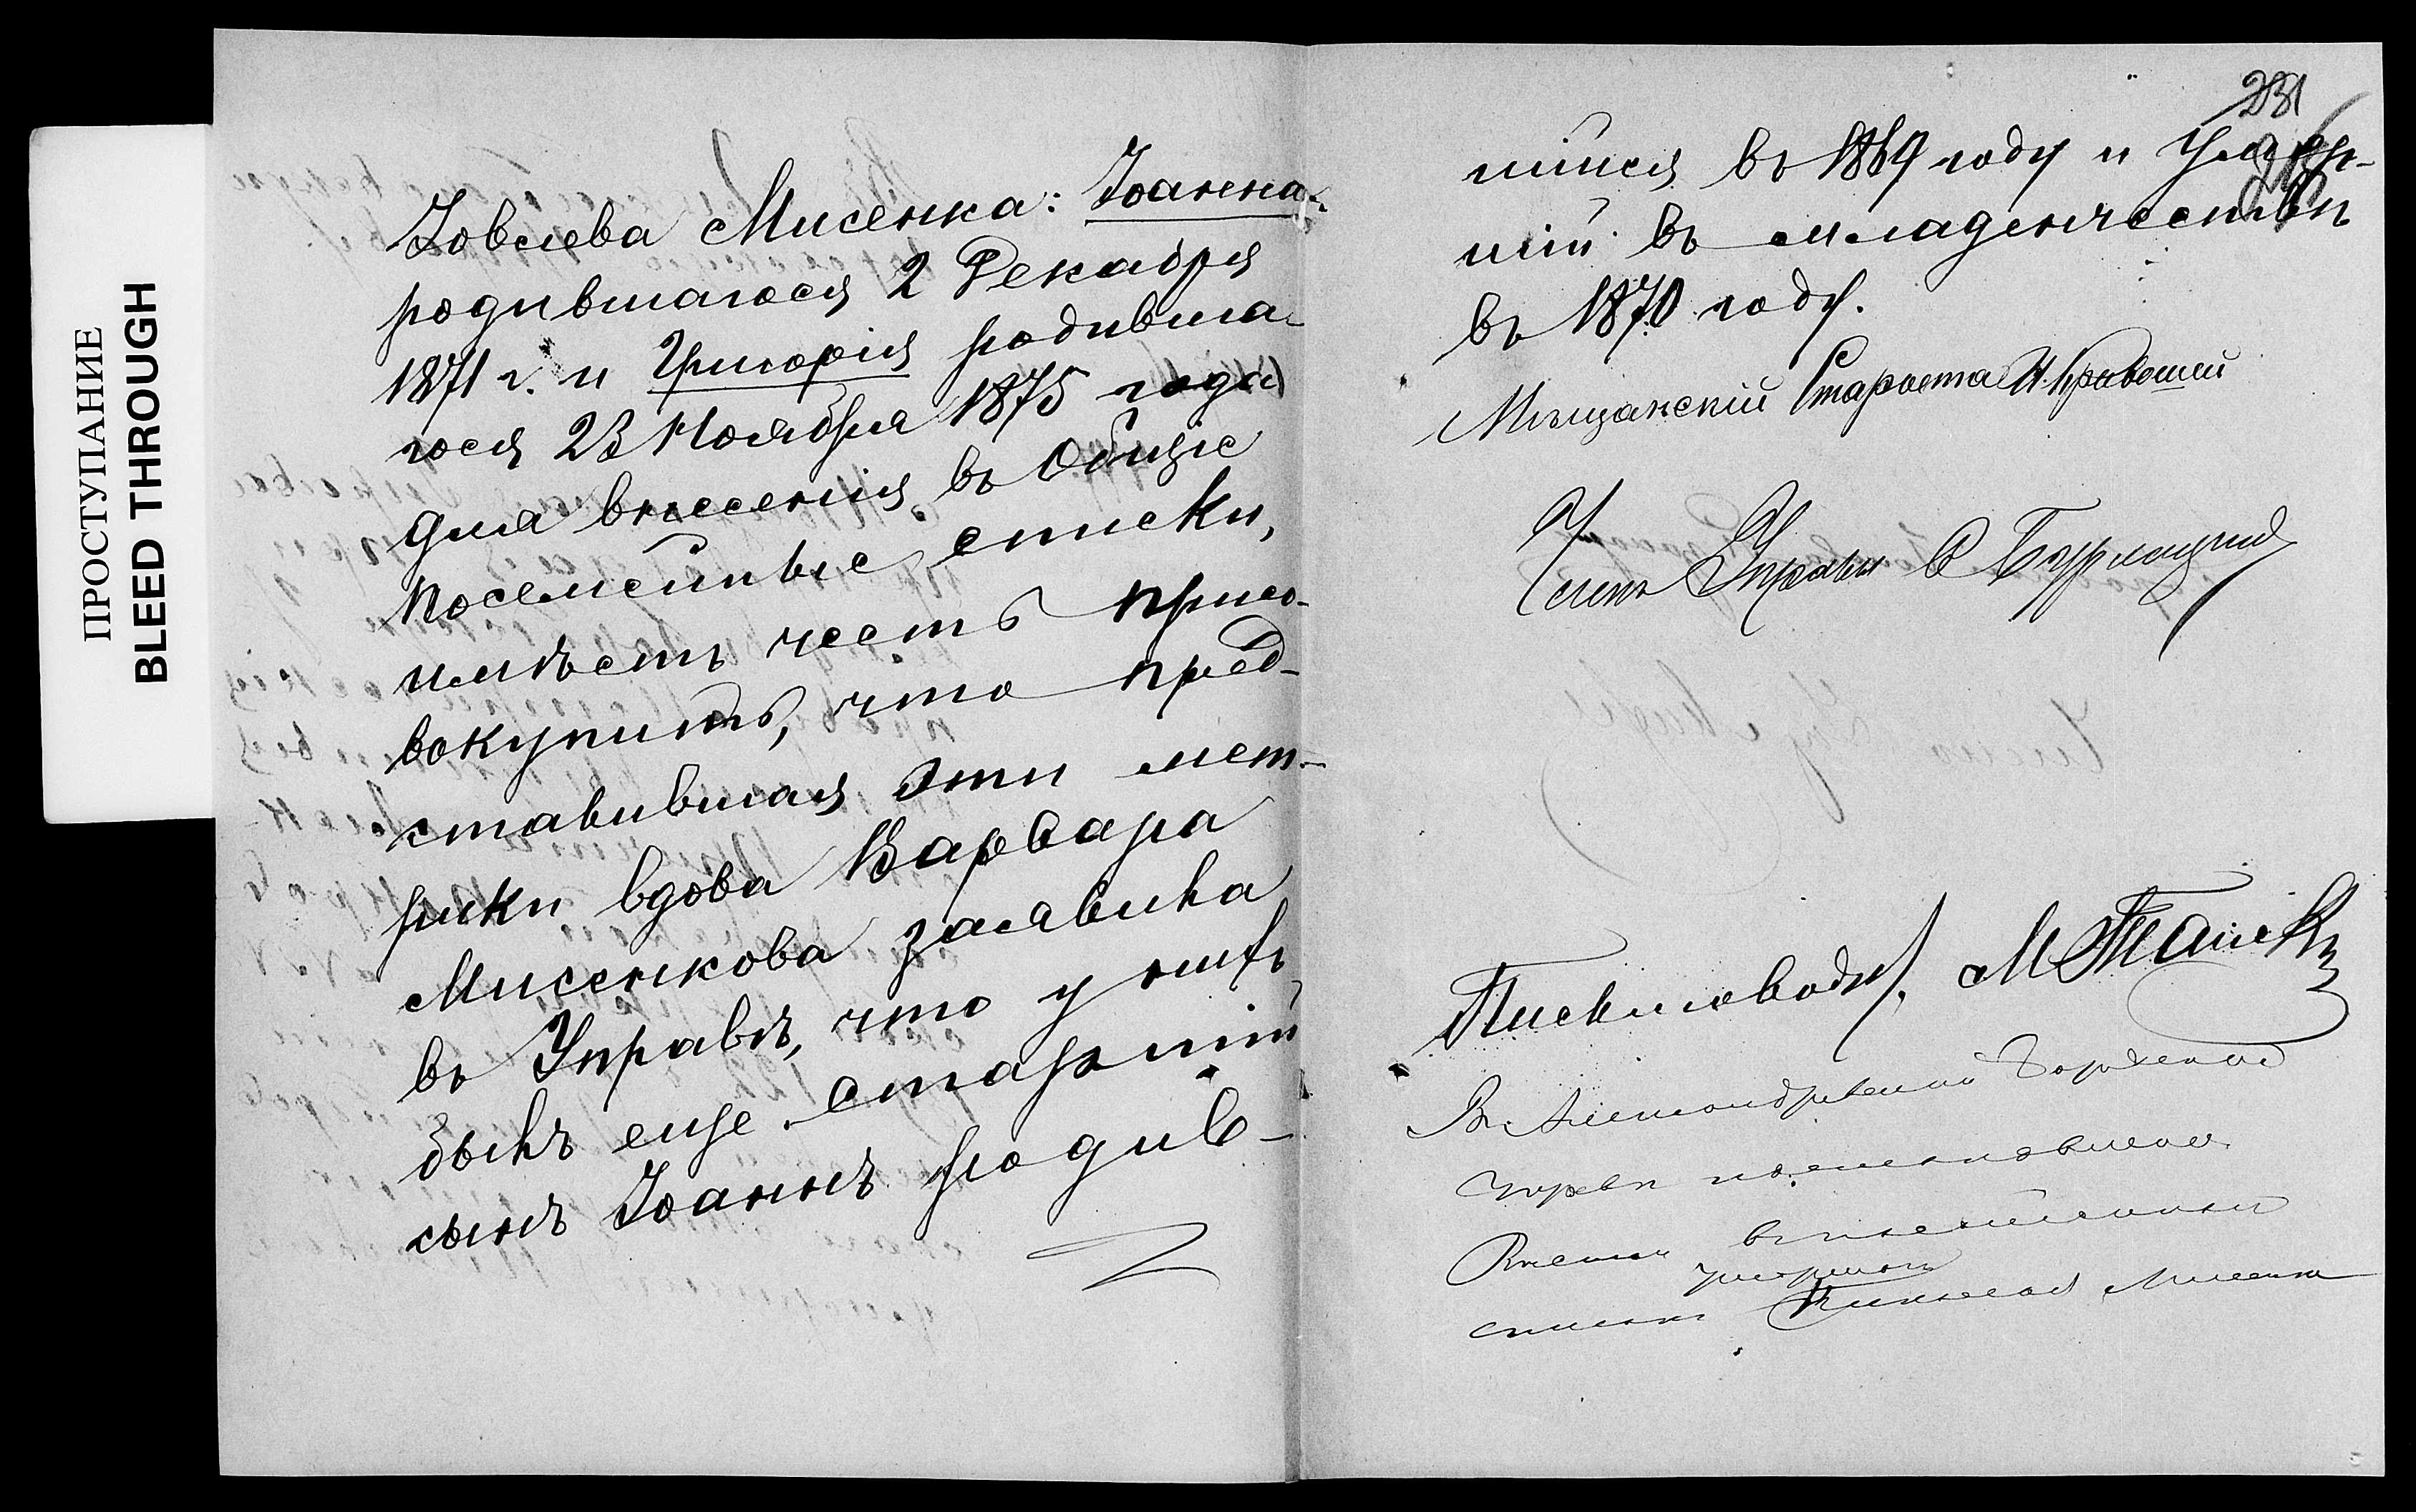 ПРОСТУПАНИЕ
BLEED THROUGH
Іовлева Мисенка: Іоанна
родившагося 2 Декабря
1871 г. и Григорія родивша-
гося 23 Ноября 1875 года
для внесенія въ Общіе
посемейные списки,
имѣетъ честь присо-
вокупить, что пред-
ставившая эти мет-
рики вдова Варвара
Мисенкова заявила
въ Управѣ, что у нихъ
былъ еще старшій
сынъ Іоаннъ родив-
231
шійся въ 1869 году и умер-
шій въ младенчествѣ
въ 1870 году.
Мѣщанскій Староста
Членъ Управы
Письмоводит. М
В. Александрійской Городской
Управѣ
списки Мисенка